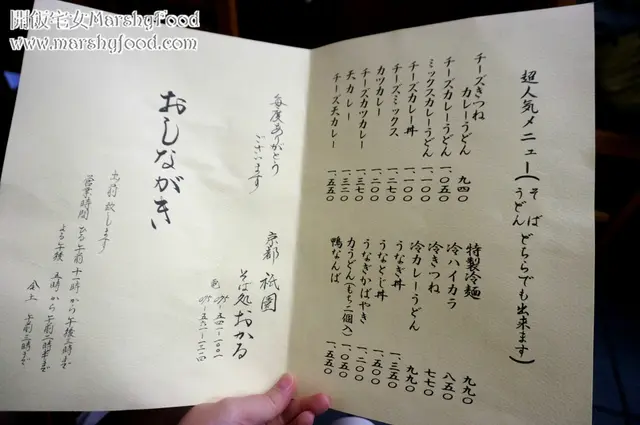 超人気メニュー(そば うどん どちらでも出来ます)
チーズきつね
カレーうどん 九四〇
チーズカレーうどん 一、〇五〇
ミックスカレーうどん 一、一〇〇
チーズカレー丼 一、一〇〇
チーズミックス 一、二七〇
カツカレー 一、二〇〇
チーズカツカレー 一、三七〇
天カレー 一、三二〇
チーズ天カレー 一、五五〇
特製冷麺 九九〇
冷ハイカラ 八五〇
冷きつね 七七〇
冷カレーうどん 九九〇
うなぎ丼 一、三五〇
うなとじ丼 一、五〇〇
うなぎかばやき 一、二〇〇
力うどん(もち二個入) 一、〇五〇
鴨なんば 一、五五〇
毎度ありがとう
ございます
京都 祇園
そば処おかる
おしながき
出前致します
営業時間 ひる午前 十一時から 午後三時まで
よる午後 五時から 午前二時半まで
金土 午前三時まで
開飯宅女MarshyFood
www.marshyfood.com